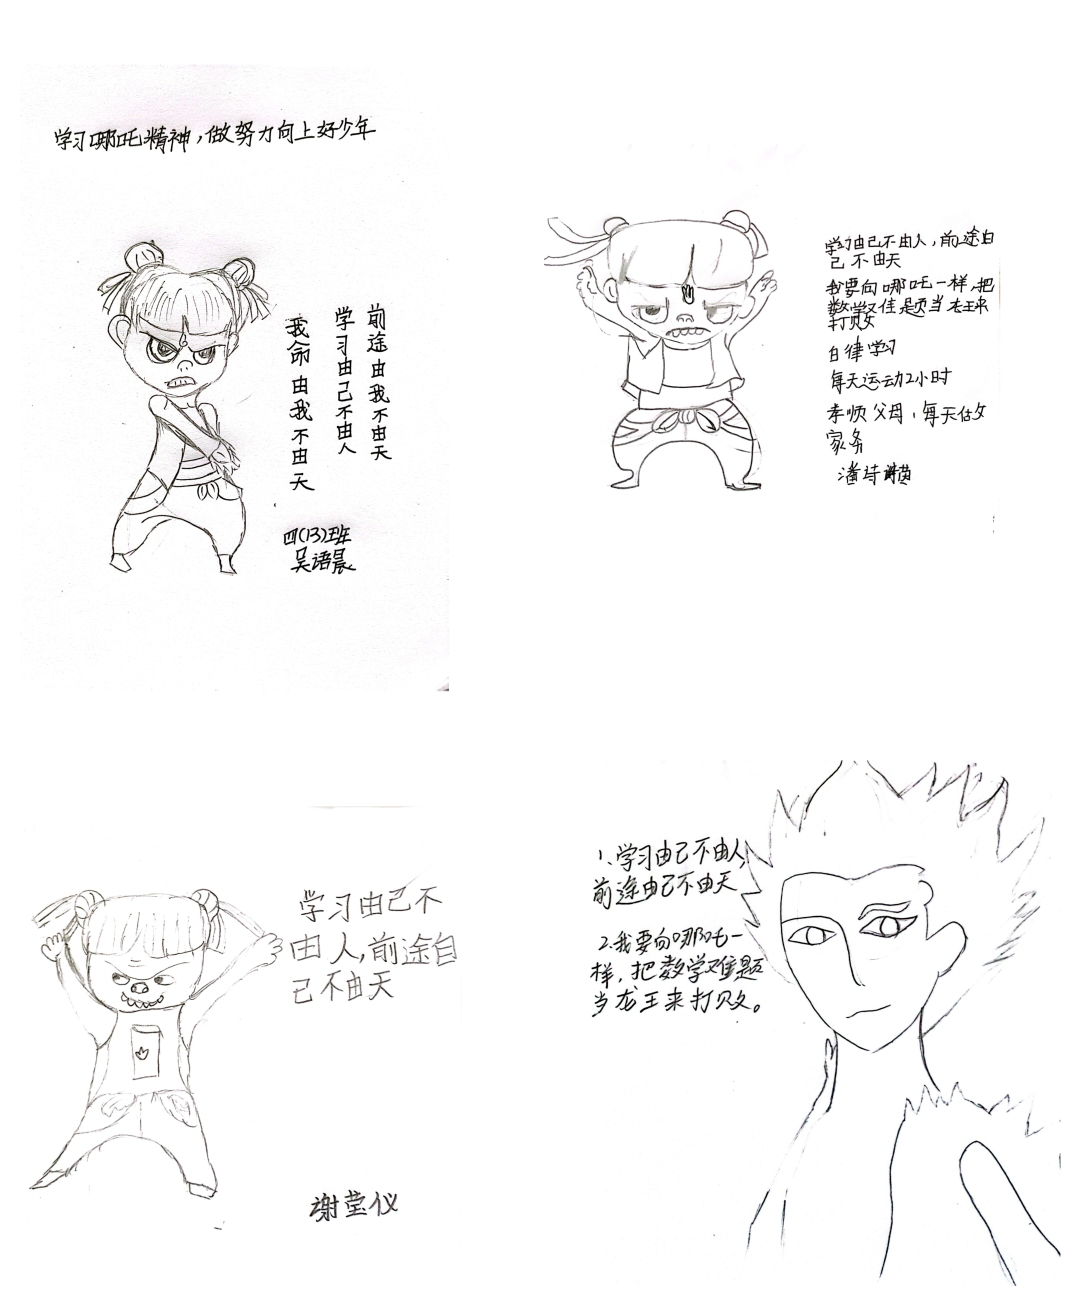 学习哪吒精神，做努力向上好少年
前途由我不由天
学习由己不由人
我命由我不由天
四(13)班
吴语晨
学习由己不由人，前途自
己不由天
我要向哪吒一样，把
数学难题当龙王来
打败
自律学习
每天运动2小时
孝顺父母，每天做
家务
潘诗
学习由己不
由人，前途自
己不由天
谢莹仪
1、学习由己不由人，
前途由己不由天
2.我要向哪吒一
样，把数学难题
当龙王来打败。